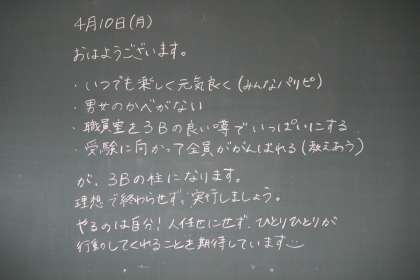 4月10日(月)
おはようございます。
・いつでも楽しく元気良く(みんなパリピ)
・男女のかべがない
・職員室を3Bの良い噂でいっぱいにする
・受験に向かって全員ががんばれる(教えあう)
が、3Bの柱になります。
理想で終わらせず、実行しましょう。
やるのは自分!人任せにせず、ひとりひとりが
行動してくれることを期待しています